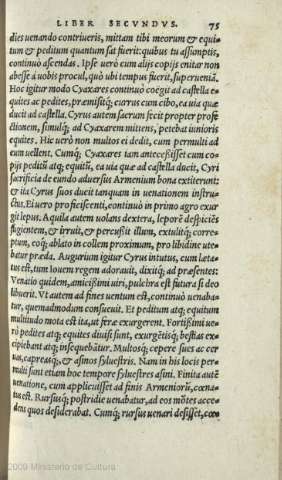 LIBER SECVNDVS. 75
dies uenando contriueris, mittam tibi meorum & equi-
tum & peditum quantum sat fuerit: quibus tu assumptis,
continuò ascendas. Ipse uerò cum alijs copijs enitar non
abesse à uobis procul, quò ubi tempus fuerit, superueniã.
Hoc igitur modo Cyaxares continuò coegit ad castella e-
quites ac pedites, præmisitq; currus cum cibo, ea uia quæ
ducit ad castella. Cyrus autem sacrum fecit propter profe
ctionem, simulq; ad Cyaxarem mittens, petebat iuniores
equites. Hic uerò non multos ei dedit, cum permulti ad
eum uellent. Cumq; Cyaxares iam antecessisset cum co-
pijs peditũ atq; equitũ, ea uia quæ ad castella ducit, Cyri
sacrificia de eundo aduersus Armenium bona extiterunt:
& ita Cyrus suos ducit tanquam in uenationem instru-
ctus. Ei uero proficiscenti, continuò in primo agro exur
git lepus. Aquila autem uolans dextera, leporẽ despiciẽs
fugientem, & irruit, & percussit illum, extulitq; corre-
ptum, eoq; ablato in collem proximum, pro libidine ute-
batur præda. Augurium igitur Cyrus intutus, cum læta-
tus est, tum Iouem regem adorauit, dixitq; ad præsentes:
Venatio quidem, amicissimi uiri, pulchra est futura si deo
libuerit. Vt autem ad fines uentum est, continuò uenaba-
tur, quemadmodum consueuit. Et peditum atq; equitum
multitudo mota est ita, ut feræ exurgerent. Fortissimi ue-
rò pedites atq; equites diuisi sunt, exurgẽtisq; bestias ex-
cipiebant atq; insequebãtur. Multosq; cepere sues ac cer
uos, capreasq; & asinos syluestris. Nam in his locis per-
multi sunt etiam hoc tempore syluestres asini. Finita autẽ
uenatione, cum applicuisset ad finis Armeniorũ, cœna-
tus est. Rursusq; postridie uenabatur, ad eos mõtes acce-
dens quos desiderabat. Cumq; rursus uenari desisset, cœ
2009 Ministerio de Cultura